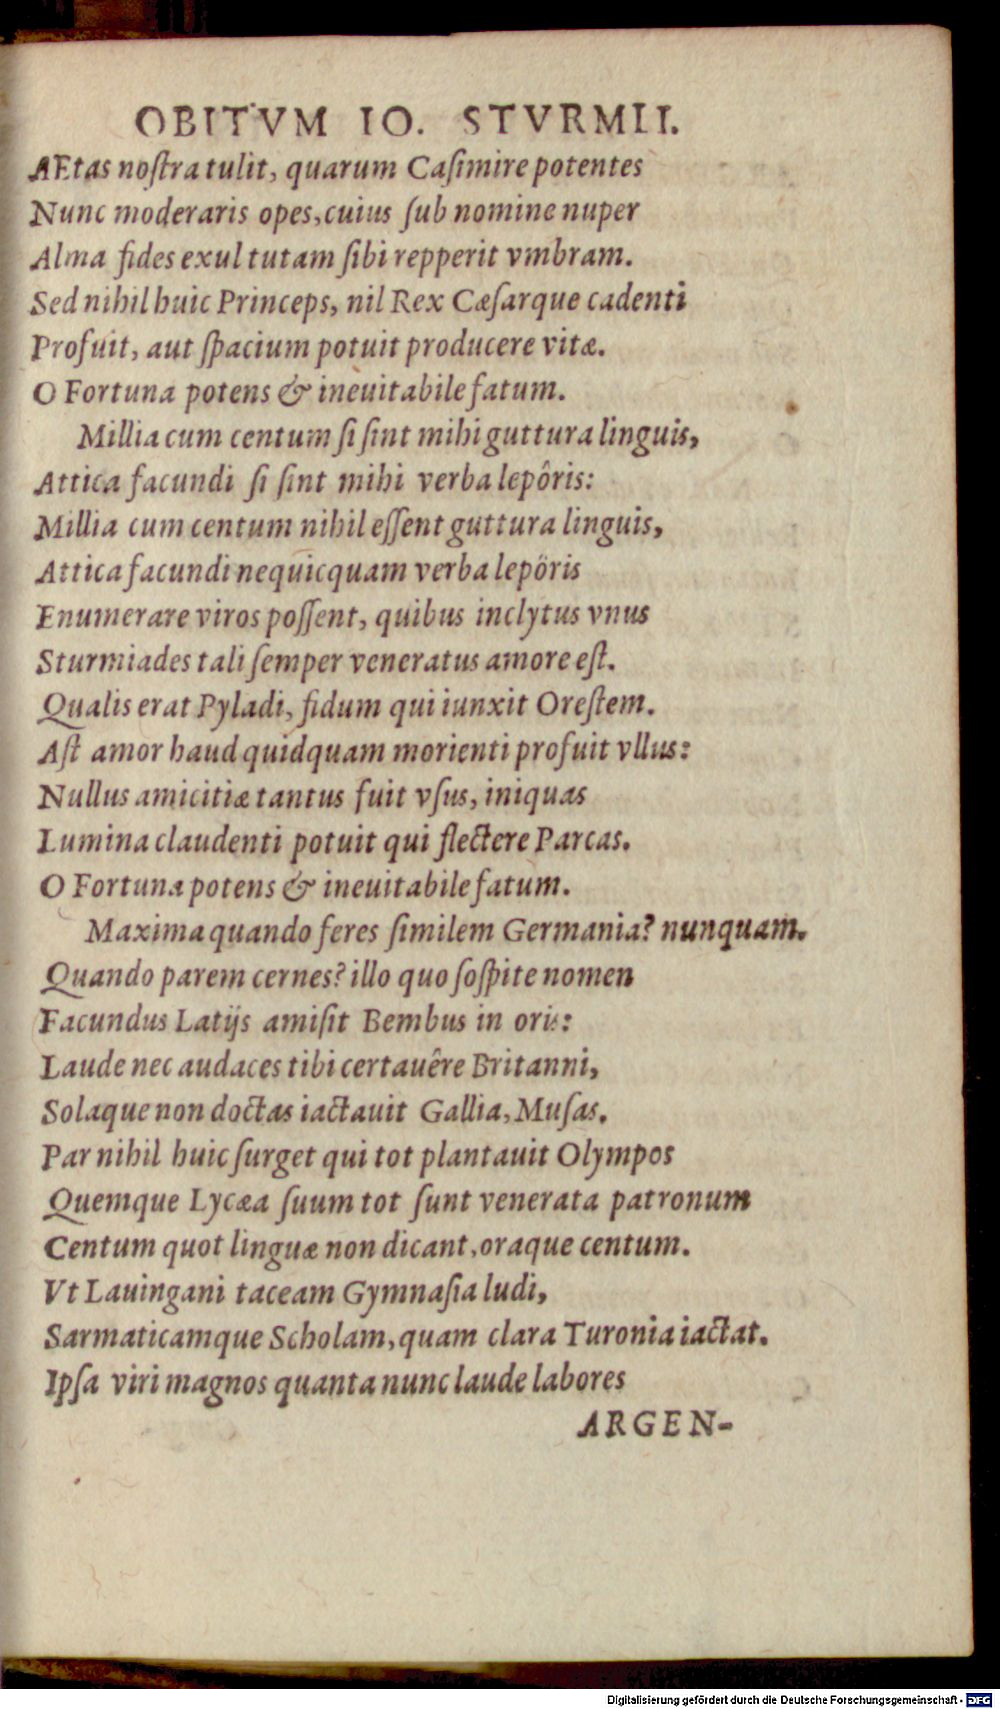 OBITVM IO. STVRMII.
AEtas noſtra tulit, quarum Caſimire potentes
Nunc moderaris opes, cuius ſub nomine nuper
Alma fides exul tutam ſibi repperit vmbram.
Sed nihil huic Princeps, nil Rex Cæſarque cadenti
Profuit, aut ſpacium potuit producere vitæ.
O Fortuna potens & ineuitabile fatum.
Millia cum centum ſi ſint mihi guttura linguis,
Attica facundi ſi ſint mihi verba lepôris:
Millia cum centum nihil eſſent guttura linguis,
Attica facundi nequicquam verba lepôris
Enumerare viros poſſent, quibus inclytus vnus
Sturmiades tali ſemper veneratus amore eſt.
Qualis erat Pyladi, fidum qui iunxit Oreſtem.
Aſt amor haud quidquam morienti profuit vllus:
Nullus amicitiæ tantus fuit vſus, iniquas
Lumina claudenti potuit qui flectere Parcas.
O Fortuna potens & ineuitabile fatum.
Maxima quando feres ſimilem Germania? nunquam.
Quando parem cernes? illo quo ſoſpite nomen
Facundus Latijs amiſit Bembus in oris:
Laude nec audaces tibi certauêre Britanni,
Solaque non doctas iactauit Gallia, Muſas.
Par nihil huic ſurget qui tot plantauit Olympos
Quemque Lycæa ſuum tot ſunt venerata patronum
Centum quot linguæ non dicant, oraque centum.
Vt Lauingani taceam Gymnaſia ludi,
Sarmaticamque Scholam, quam clara Turonia iactat.
Ipſa viri magnos quanta nunc laude labores
ARGEN-
Digitalisierung gefördert durch die Deutsche Forschungsgemeinschaft - DFG